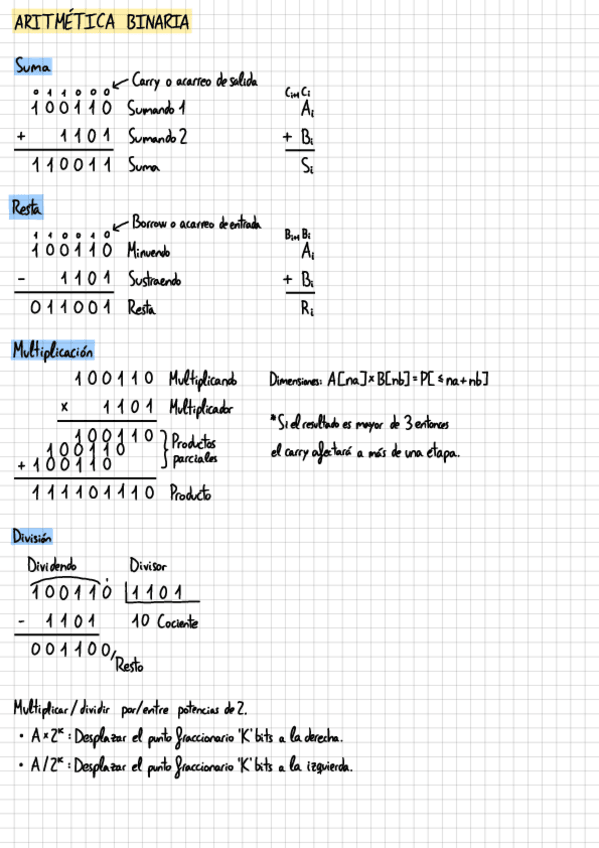 ARITMÉTICA BINARIA
Suma
0 1 1 0 0 0 Carry o acarreo de salida Ci+1 Ci
1 0 0 1 1 0 Sumando 1 Ai
+ 1 1 0 1 Sumando 2 + Bi
1 1 0 0 1 1 Suma Si
Resta
1 1 0 0 1 0 Borrow o acarreo de entrada Bi+1 Bi
1 0 0 1 1 0 Minuendo Ai
- 1 1 0 1 Sustraendo + Bi
0 1 1 0 0 1 Resta Ri
Multiplicación
1 0 0 1 1 0 Multiplicando Dimensiones: A[na]×B[nb]=P[≤na+nb]
× 1 1 0 1 Multiplicador
*Si el resultado es mayor de 3 entonces
1 0 0 1 1 0 Productos
1 0 0 1 1 0 parciales el carry afectará a más de una etapa.
+ 1 0 0 1 1 0
1 1 1 1 0 1 1 1 0 Producto
División
Dividendo Divisor
1 0 0 1 1 0 1 1 0 1
- 1 1 0 1 10 Cociente
0 0 1 1 0 0 Resto
Multiplicar/dividir por/entre potencias de 2.
• A×2ᴷ: Desplazar el punto fraccionario 'K' bits a la derecha.
• A/2ᴷ: Desplazar el punto fraccionario 'K' bits a la izquierda.